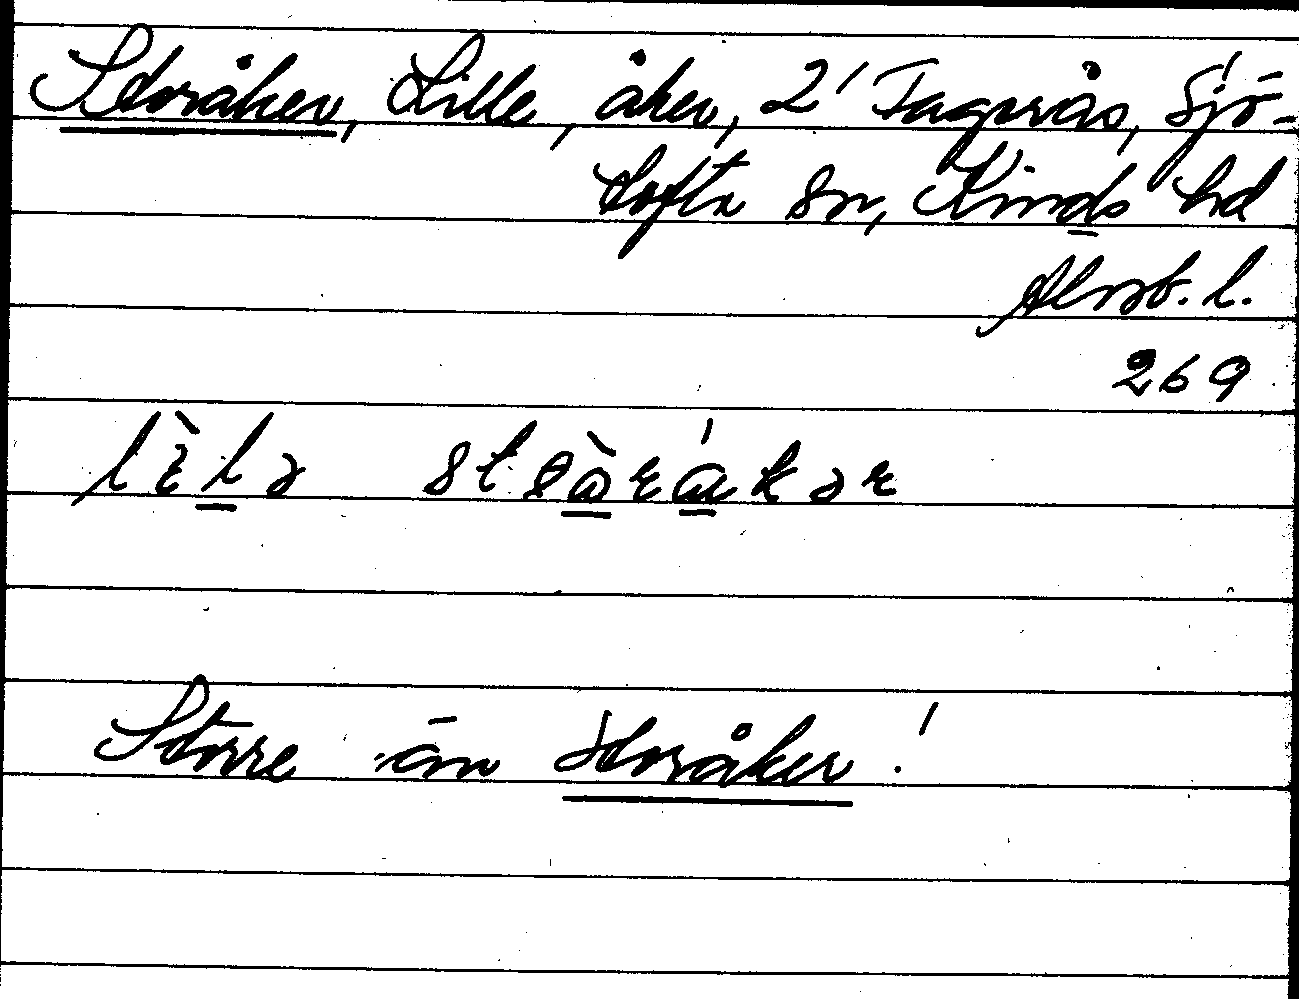 Storåker, Lille, åker, 2' Fagerås, Sjö-
tofta sn, Kinds hd
Älvsb. l.
269
Större än Storåker!